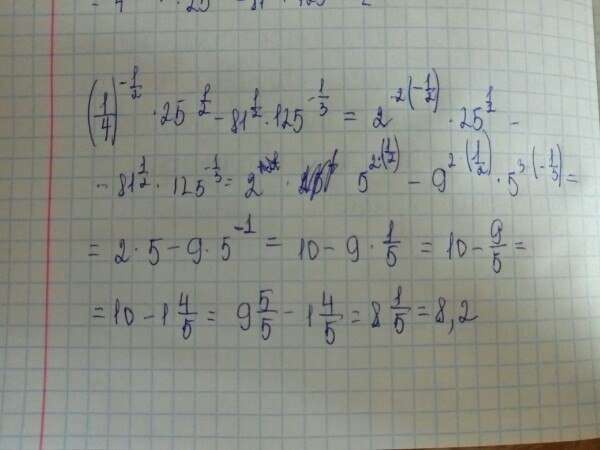 (1/4)^(-1/2) · 25^(1/2) - 81^(1/2) · 125^(-1/3) = 2^(-2(-1/2)) · 25^(1/2) -
- 81^(1/2) · 125^(-1/3) = 2 · 5^(2(1/2)) - 9^(2(1/2)) · 5^(3(-1/3)) =
= 2 · 5 - 9 · 5^(-1) = 10 - 9 · 1/5 = 10 - 9/5 =
= 10 - 1 4/5 = 9 5/5 - 1 4/5 = 8 1/5 = 8,2